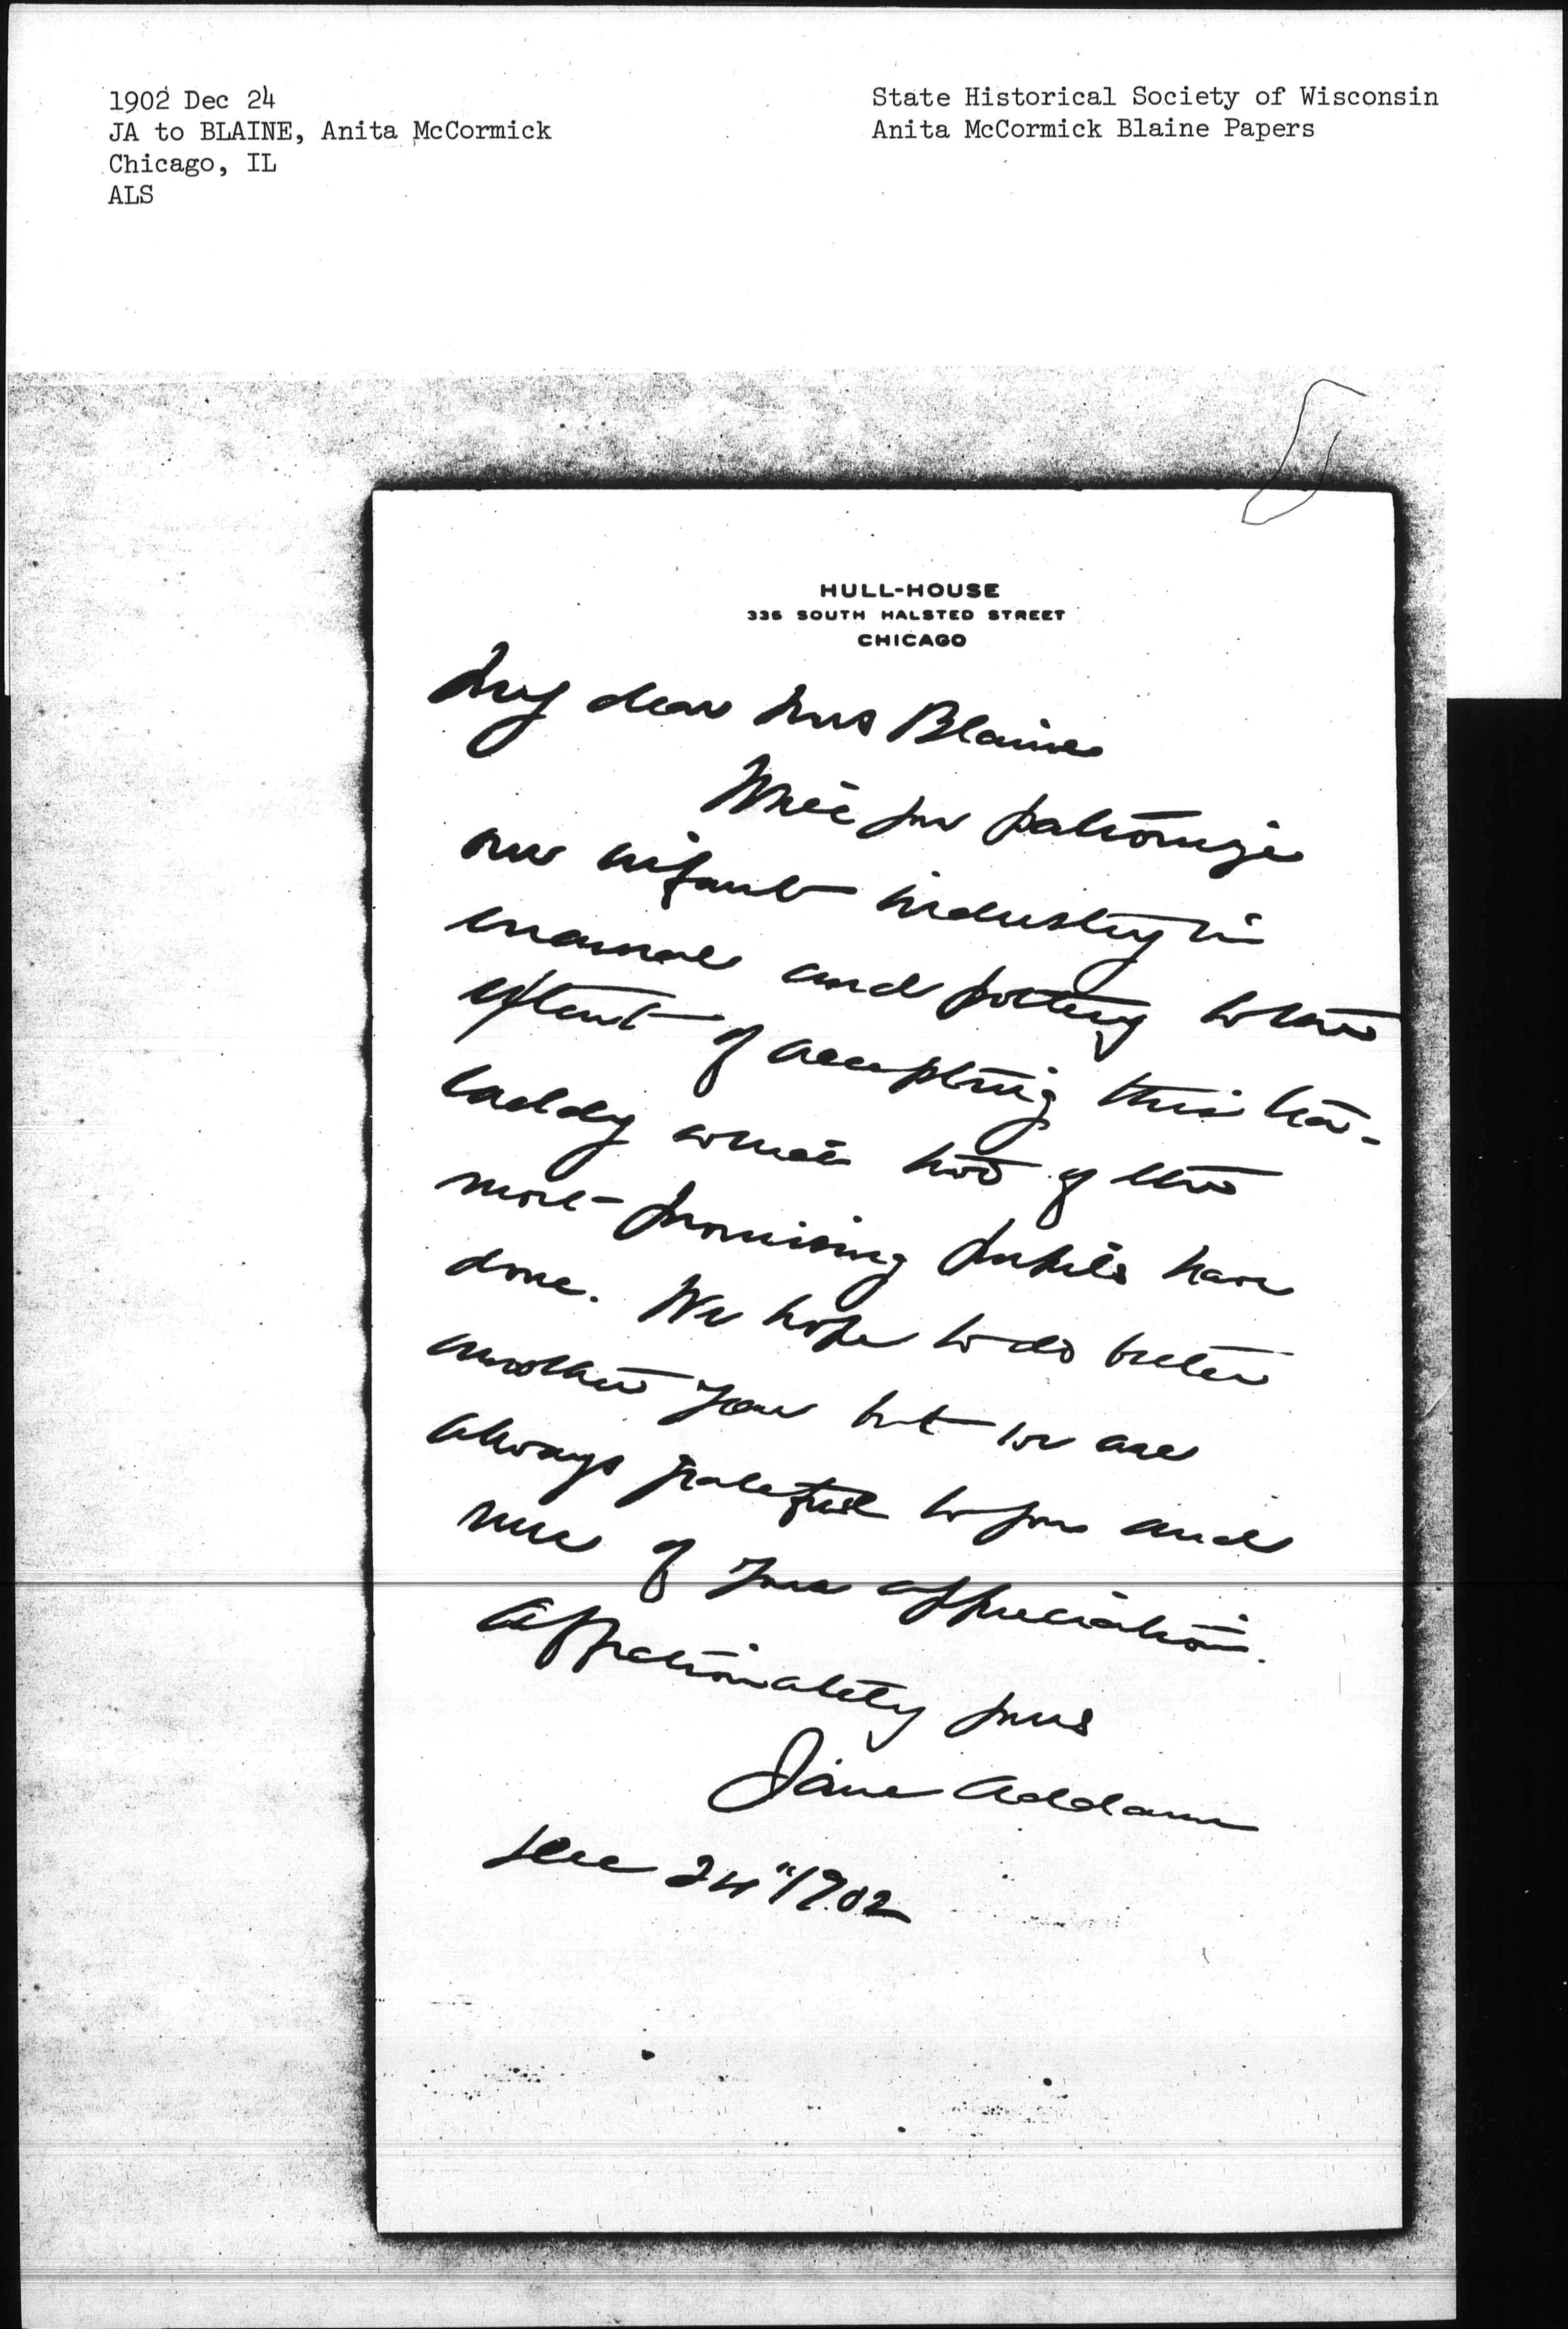 1902 Dec 24
JA to BLAINE, Anita McCormick
Chicago, IL
ALS
State Historical Society of Wisconsin
Anita McCormick Blaine Papers
HULL-HOUSE
335 SOUTH HALSTED STREET
CHICAGO
My dear Mrs Blaine
Will you patronize
our infant industry in
enamel and pottery to the
extent of accepting this tea-
caddy which two of the
most promising pupils have
done. We hope to do better
another year but we are
always grateful to you and
sure of your appreciation.
Affectionately yours
Jane Addams
Dec 24" 1902